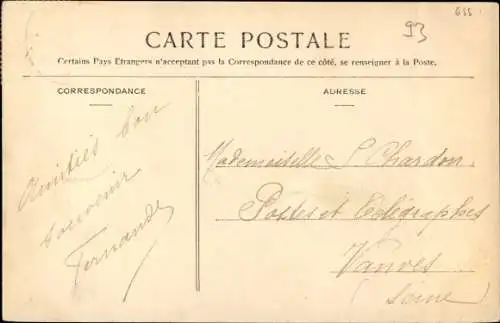 CARTE POSTALE
93
655
Certains Pays Etrangers n'acceptant pas la Correspondance de ce côté, se renseigner à la Poste.
CORRESPONDANCE
Amitiés bon
souvenir
Fernande
ADRESSE
Mademoiselle L Chardon
Postes et Télégraphes
Vanves
(Seine)